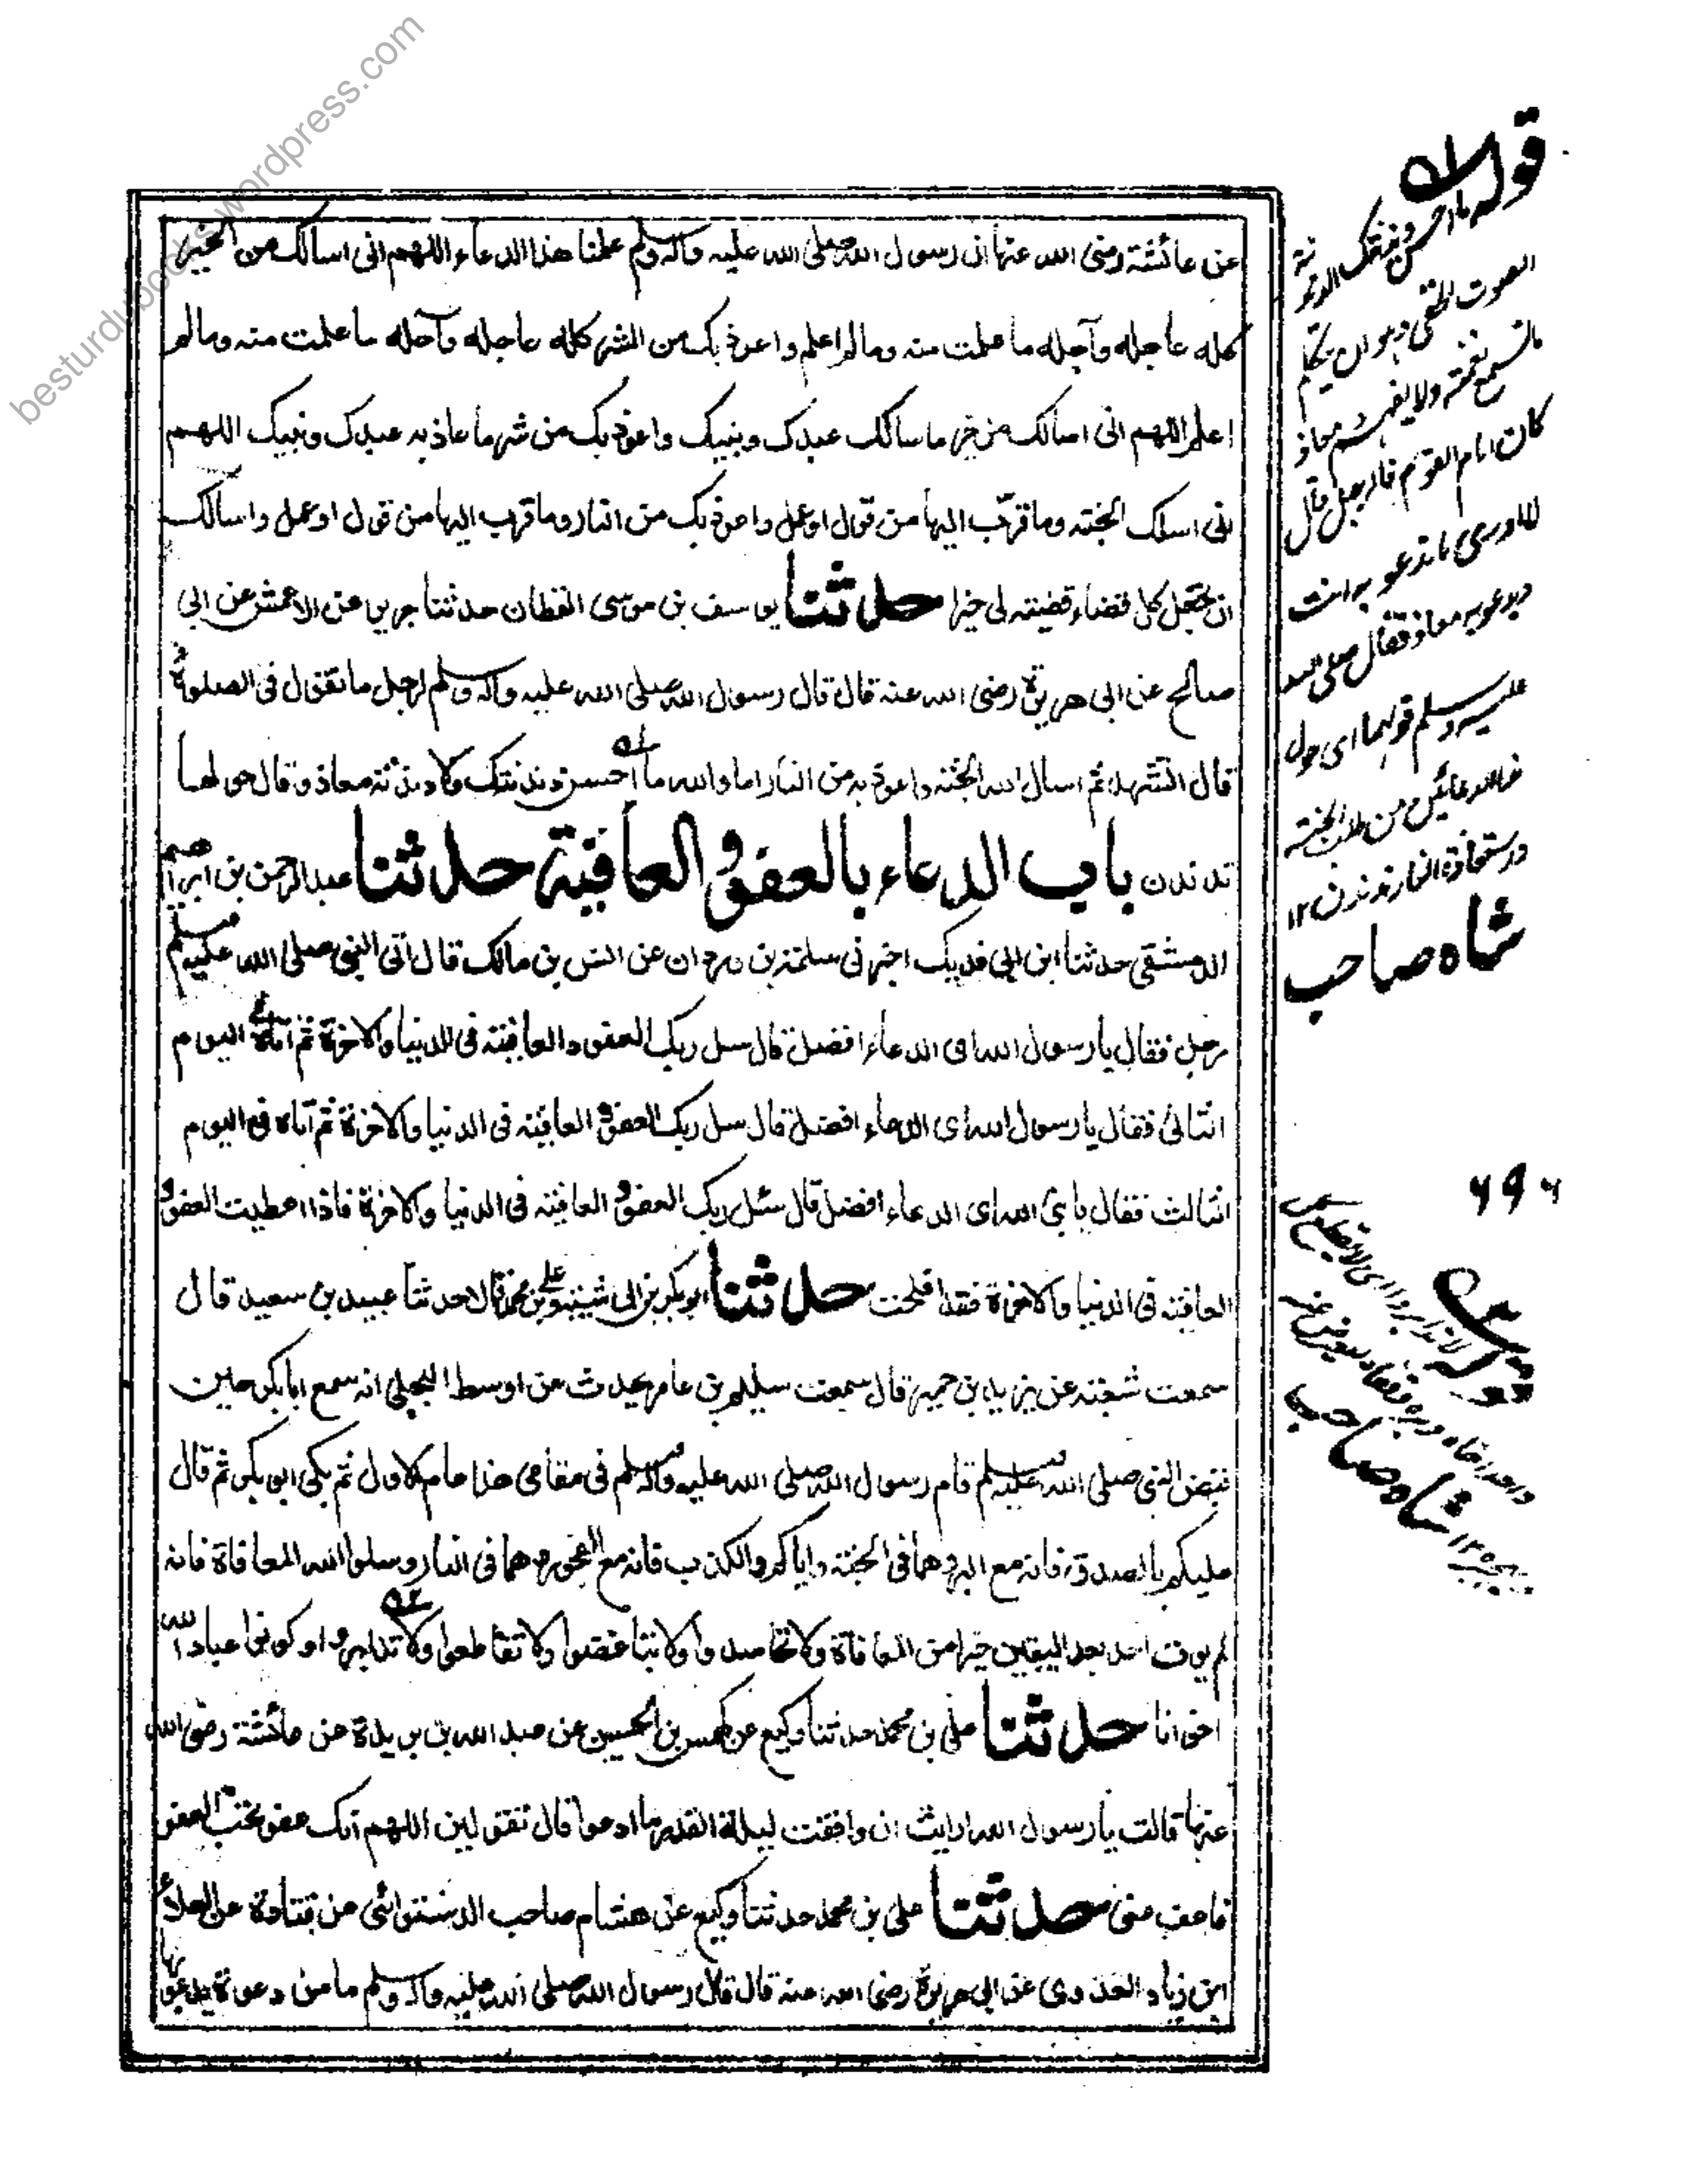 عن عائشة رضى الله عنها ان رسول الله صلى الله عليه وآله وسلم علمنا هذا الدعاء اللهم انى اسالك من الخير
كله عاجله وآجله ما علمت منه وما لم اعلم واعوذ بك من الشر كله عاجله وآجله ما علمت منه وما لم
اعلم اللهم انى اسالك من خير ما سالك عبدك ونبيك واعوذ بك من شر ما عاذ به عبدك ونبيك اللهم
انى اسلك الجنة وما قرب اليها من قول او عمل واعوذ بك من النار وما قرب اليها من قول او عمل واسالك
ان تجعل كل قضاء قضيته لى خيرا حدثنا يوسف بن موسى القطان حدثنا جرير عن الاعمش عن ابى
صالح عن ابى هريرة رضى الله عنه قال قال رسول الله صلى الله عليه وآله وسلم لرجل ما تقول فى الصلوة
قال اتشهد ثم اسال الله الجنة واعوذ به من النار اما والله ما احسن دندنتك ولا دندنة معاذ وقال حولها
تدندن باب الدعاء بالعفو والعافية حدثنا عبد الرحمن بن ابراهيم
الدمشقى حدثنا ابن ابى فديك اخبرنى سلمة بن وردان عن انس بن مالك قال اتى النبى صلى الله عليه وسلم
رجل فقال يا رسول الله اى الدعاء افضل قال سل ربك العفو والعافية فى الدنيا والاخرة ثم آتاه فى اليوم
الثانى فقال يا رسول الله اى الدعاء افضل قال سل ربك العفو و العافية فى الدنيا والاخرة ثم آتاه فى اليوم
الثالث فقال يا نبى الله اى الدعاء افضل قال سئل ربك العفو و العافية فى الدنيا والاخرة فاذا اعطيت العفو و
العافية فى الدنيا والاخرة فقد افلحت حدثنا ابو بكر بن ابى شيبة وعلى بن محمد قالا حدثنا عبيد بن سعيد قال
سمعت شعبة عن يزيد بن خمير قال سمعت سليم بن عامر يحدث عن اوسط البجلى انه سمع ابا بكر حين
قبض النبى صلى الله عليه وسلم قام رسول الله صلى الله عليه وآله وسلم فى مقامى هذا عام الاول ثم بكى ابو بكر ثم قال
عليكم بالصدق فانه مع البر وهما فى الجنة واياكم والكذب فانه مع الفجور وهما فى النار وسلوا الله المعافاة فانه
لم يوت احد بعد اليقين خيرا من المعافاة ولا تحاسدوا ولا تباغضوا ولا تقاطعوا ولا تدابروا وكونوا عباد الله
اخوانا حدثنا على بن محمد حدثنا وكيع عن كهمس بن الحسين عن عبد الله بن بريدة عن عائشة رضى الله
عنها قالت يا رسول الله ارايت ان وافقت ليلة القدر ما ادعوا قال تقولين اللهم انك عفو تحب العفو
فاعف عنى حدثنا على بن محمد حدثنا وكيع عن هشام صاحب الدستوائى عن قتادة عن العلاء
ابن زياد العدوى عن ابى هريرة رضى الله عنه قال قال رسول الله صلى الله عليه وآله وسلم ما من دعوة يدعو بها
قوله ما احسن دندنتك الدندنة
الصوت الخفى وهو ان يتكلم
ما تسمع نغمته ولا يفهم معاذ
كان امام القوم فالرجل قال
لا ادرى ما تدعو به انت
ويدعو به معاذ فقال صلى الله
عليه وسلم قولهما اى حول
هذا الدعائين من طلب الجنة
واستعاذة النار ندندن ١٢
شاه صاحب
٦٩٦
قوله
لا تدابروا اى لا يقطع
شاه صاحب
besturdubooks.wordpress.com